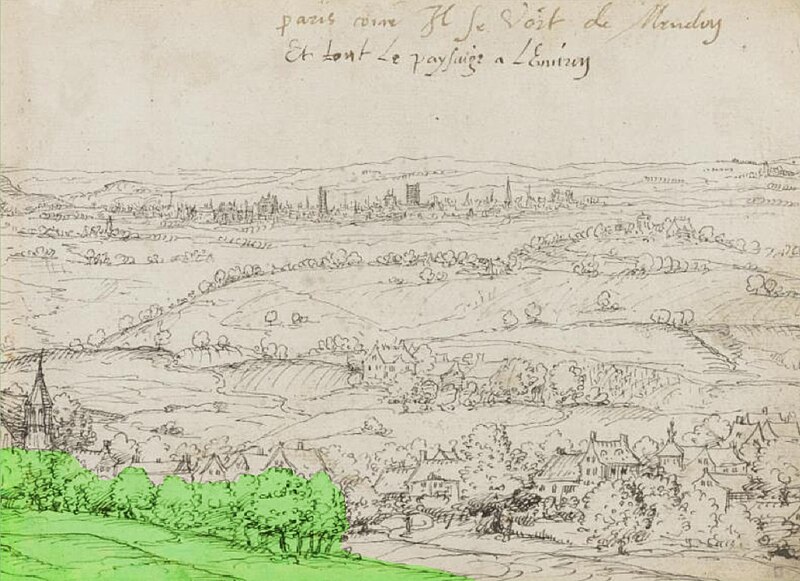 paris come Il se Voit de Meudon
Et tout Le paysaige a L'Enuiron